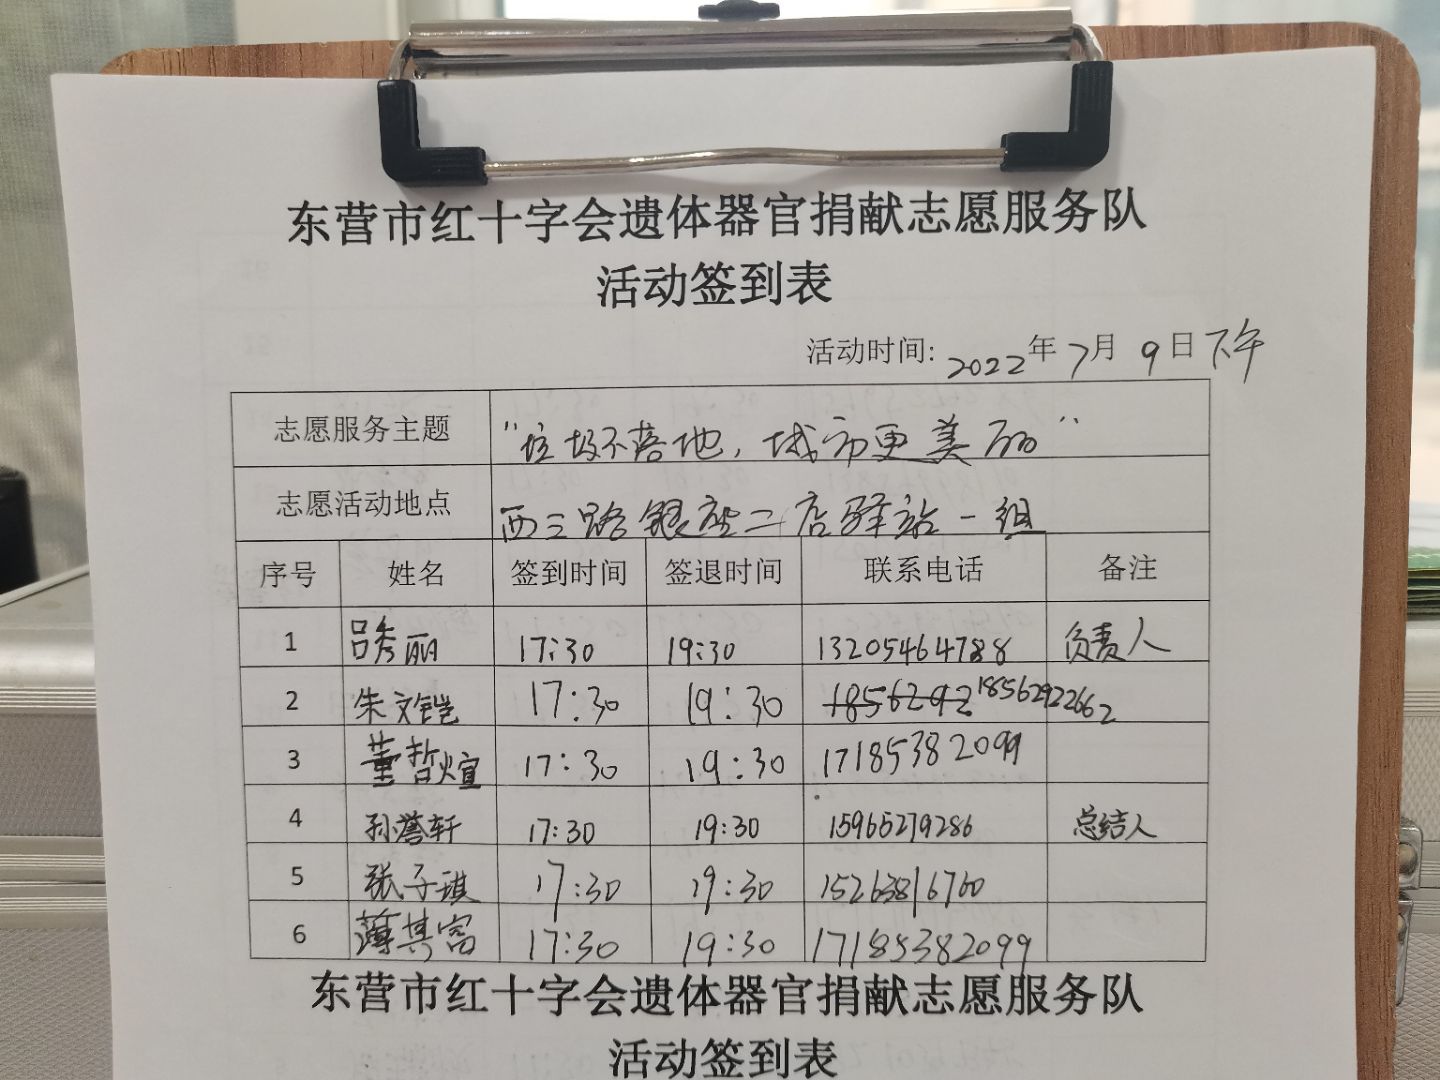 东营市红十字会遗体器官捐献志愿服务队
活动签到表
活动时间: 2022年7月9日下午
志愿服务主题 “垃圾不落地，城市更美丽”
志愿活动地点 西三路银座二店驿站一组
序号 姓名 签到时间 签退时间 联系电话 备注
1 吕秀丽 17:30 19:30 13205464788 负责人
2 朱文铠 17:30 19:30 1856292 18562922662
3 董哲煊 17:30 19:30 17185382099
4 孙誉轩 17:30 19:30 15965279286 总结人
5 张子琪 17:30 19:30 15263816760
6 薄其富 17:30 19:30 17185382099
东营市红十字会遗体器官捐献志愿服务队
活动签到表